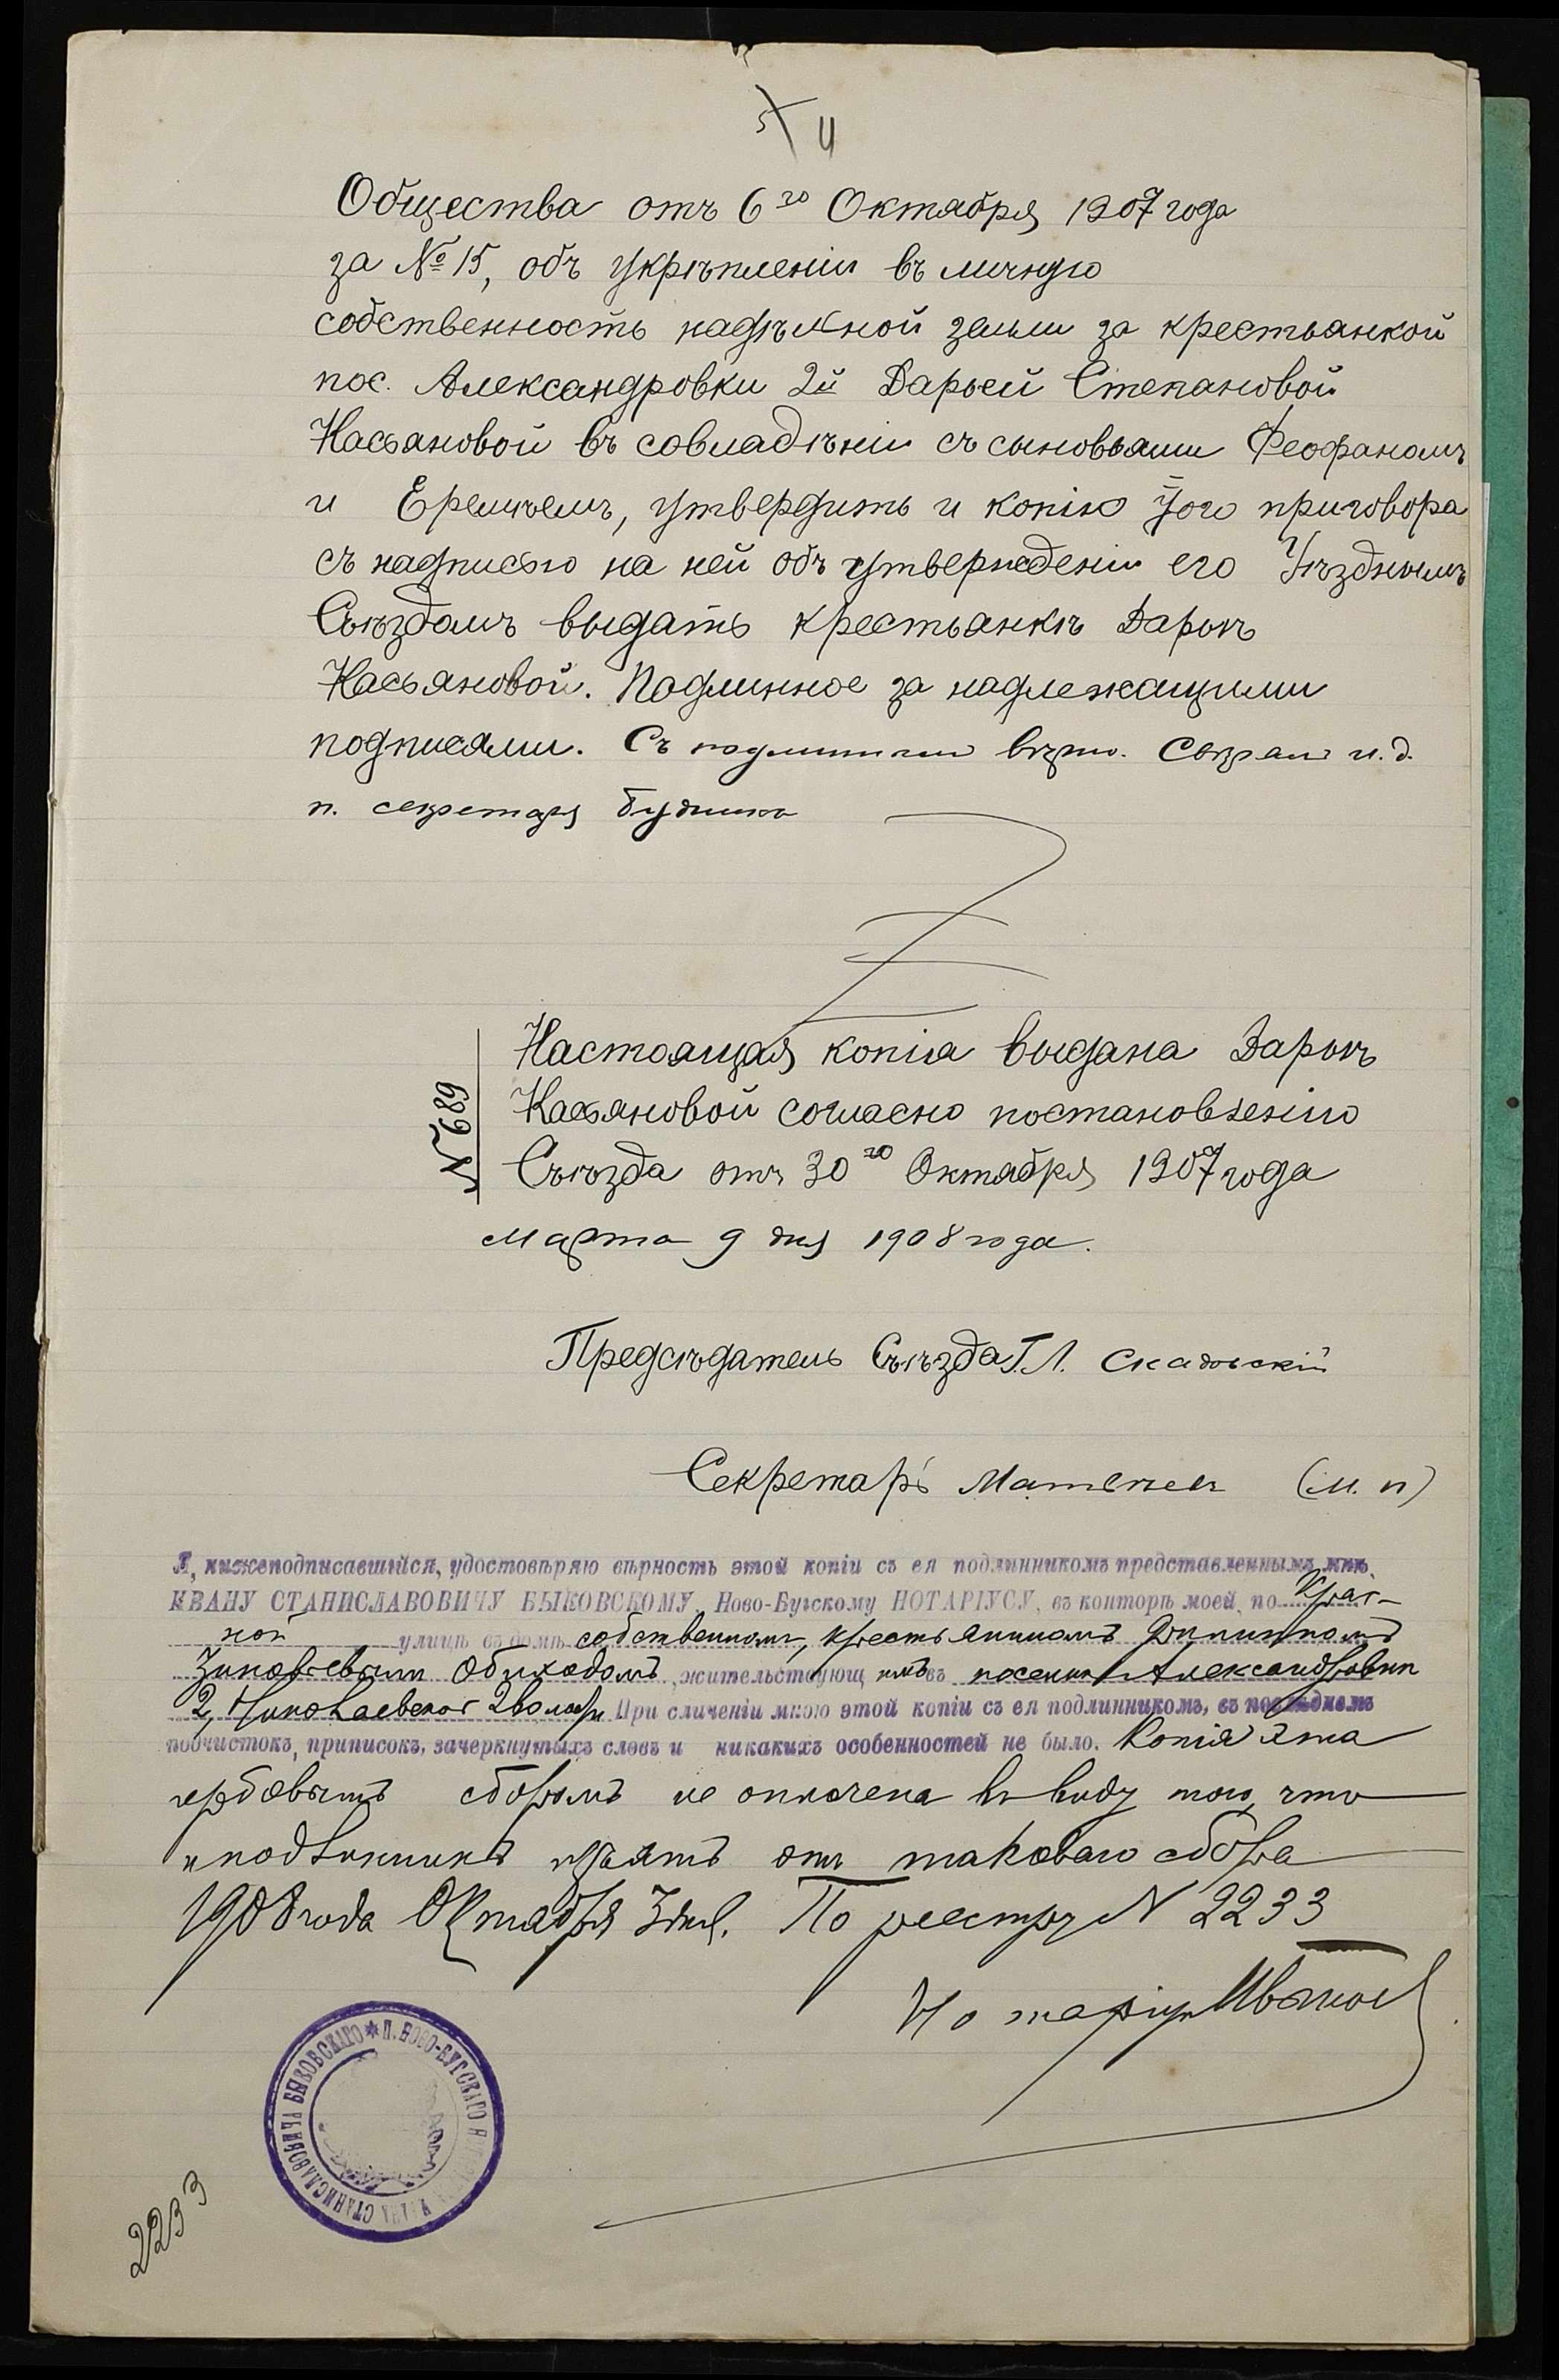 4
Общества отъ 6го Октября 1907 года
за № 15, объ укрѣпленіи въ личную
собственность надѣльной земли за крестьянкой
пос. Александровки 2й Дарьей Степановой
Касьяновой въ совладѣніи съ сыновьями Феофаномъ
и Еремѣемъ, утвердить и копію этого приговора
съ надписью на ней объ утвержденіи его Уѣзднымъ
Съѣздомъ выдать крестьянкѣ Дарьѣ
Касьяновой. Подлинное за надлежащими
подписями. Съ подлиннымъ вѣрно. и.д.
п. секретаря
№ 689
Настоящая копія выдана Дарьѣ
Касьяновой согласно постановленію
Съѣзда отъ 30го Октября 1907 года
Марта 9 дня 1908 года.
Предсѣдатель Съѣзда Г.Л. Скадовскій
Секретарь Матвѣевъ (М. п)
Я, нижеподписавшійся, удостовѣряю вѣрность этой копіи съ ея подлинникомъ представленнымъ мнѣ,
ИВАНУ СТАНИСЛАВОВИЧУ БЫКОВСКОМУ, Ново-Бугскому НОТАРІУСУ, въ конторѣ моей, по Крас-
ной улицѣ въ домѣ собственномъ, крестьяниномъ Филиппомъ
Зиновьевымъ Обиходомъ, жительствующимъ въ поселкѣ Александровкѣ
2, Николаевской 2 волости При сличеніи мною этой копіи съ ея подлинникомъ, въ послѣднемъ
подчистокъ, приписокъ, зачеркнутыхъ словъ и никакихъ особенностей не было. Копія эта
гербовымъ сборомъ не оплачена въ виду того, что
и подлинникъ изъятъ отъ таковаго сбора
1908 года Октября 3 дня. По реестру N 2233
Нотаріусъ
* П. НОВО-БУГСКАГО Н ИВАНА СТАНИСЛАВОВИЧА БЫКОВСКАГО
2233